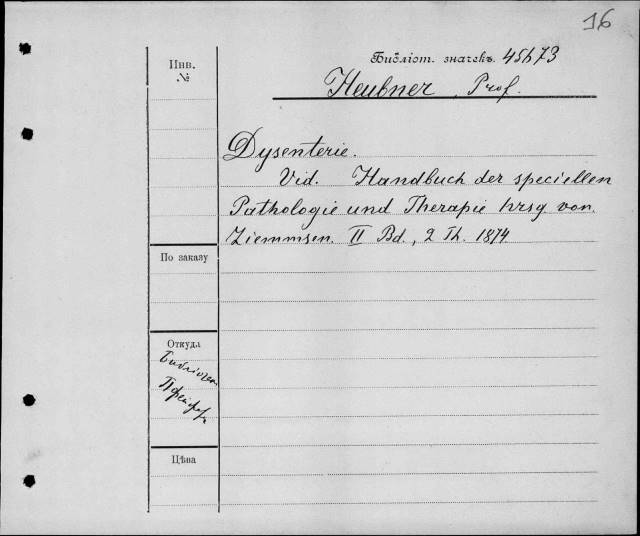 16
Библіот. значекъ. 45673
Инв.
№
Heubner, Prof.
Dysenterie.
Vid. Handbuch der speciellen
Pathologie und Therapie hrsg. von
Ziemmsen. II Bd., 2 Th. 1874.
По заказу
Откуда
Цѣна